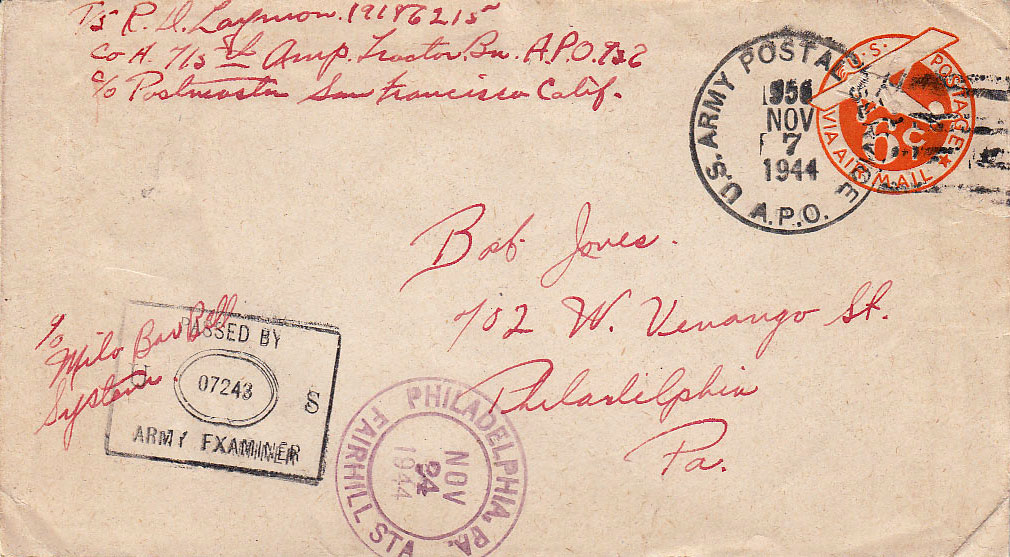 T/5 R. D. Laymon. 19186215
Co A. 715th Amp. Tractor Bn. A.P.O.
c/o Postmaster San Francisco Calif.
U.S. ARMY POSTAL SERVICE
1956
NOV
7
1944
A.P.O.
U.S. POSTAGE
6c
VIA AIR MAIL
Bob Jones.
702 W. Venango St.
Philadelphia
Pa.
c/o
Milo Bar Bell
System.
PASSED BY
U S
07243
ARMY EXAMINER
PHILADELPHIA, PA.
NOV
24
1944
FAIRHILL STA